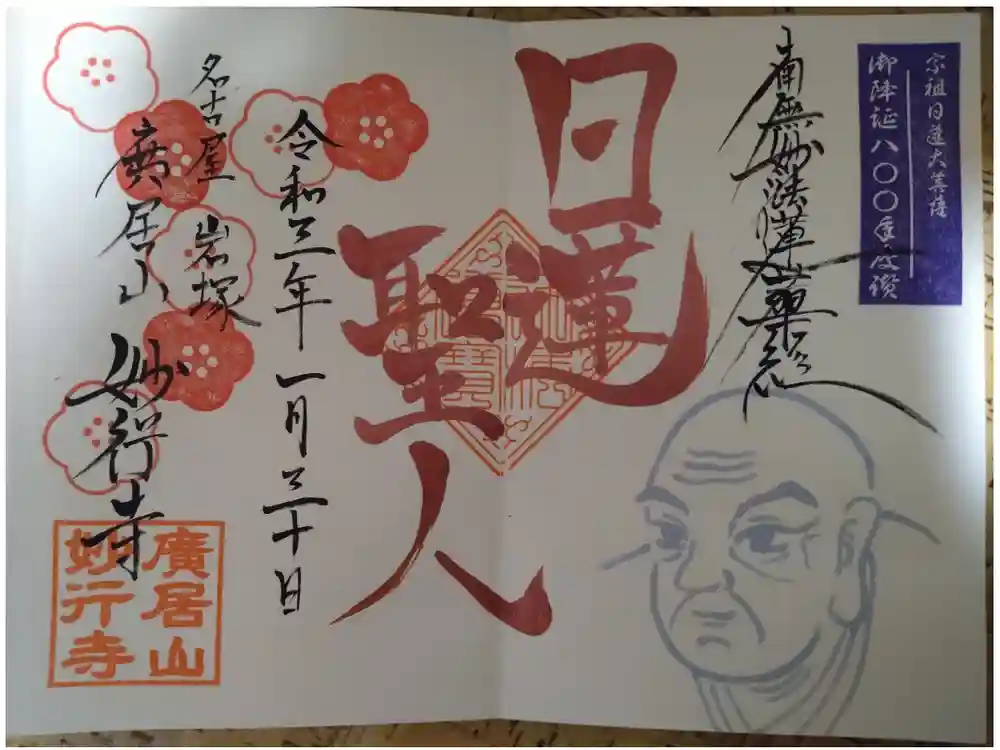 宗祖日蓮大菩薩
御降誕八〇〇年慶讃
南無妙法蓮華経
日蓮
聖人
令和三年一月三十日
名古屋 岩塚
廣居山 妙行寺
廣居山
妙行寺